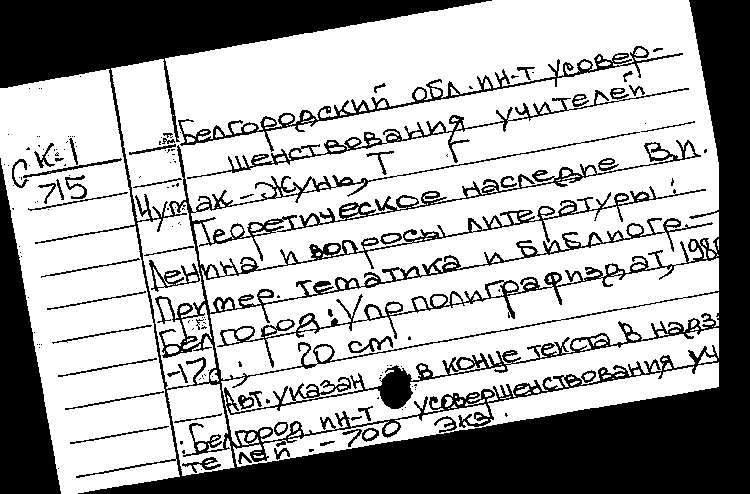 Белгородский обл. ин-т усовер-
шенствования учителей
СК-1
715
Чумак-Жунь, Т Г
Теоретическое наследие В.И.
Ленина и вопросы литературы:
Пример. тематика и библиогр.-
Белгород: Упрполиграфиздат, 198
-17с.; 20 cm.
Авт. указан в конце текста. В надз
: Белгород. ин-т усовершенствования уч
телей. - 700 экз.